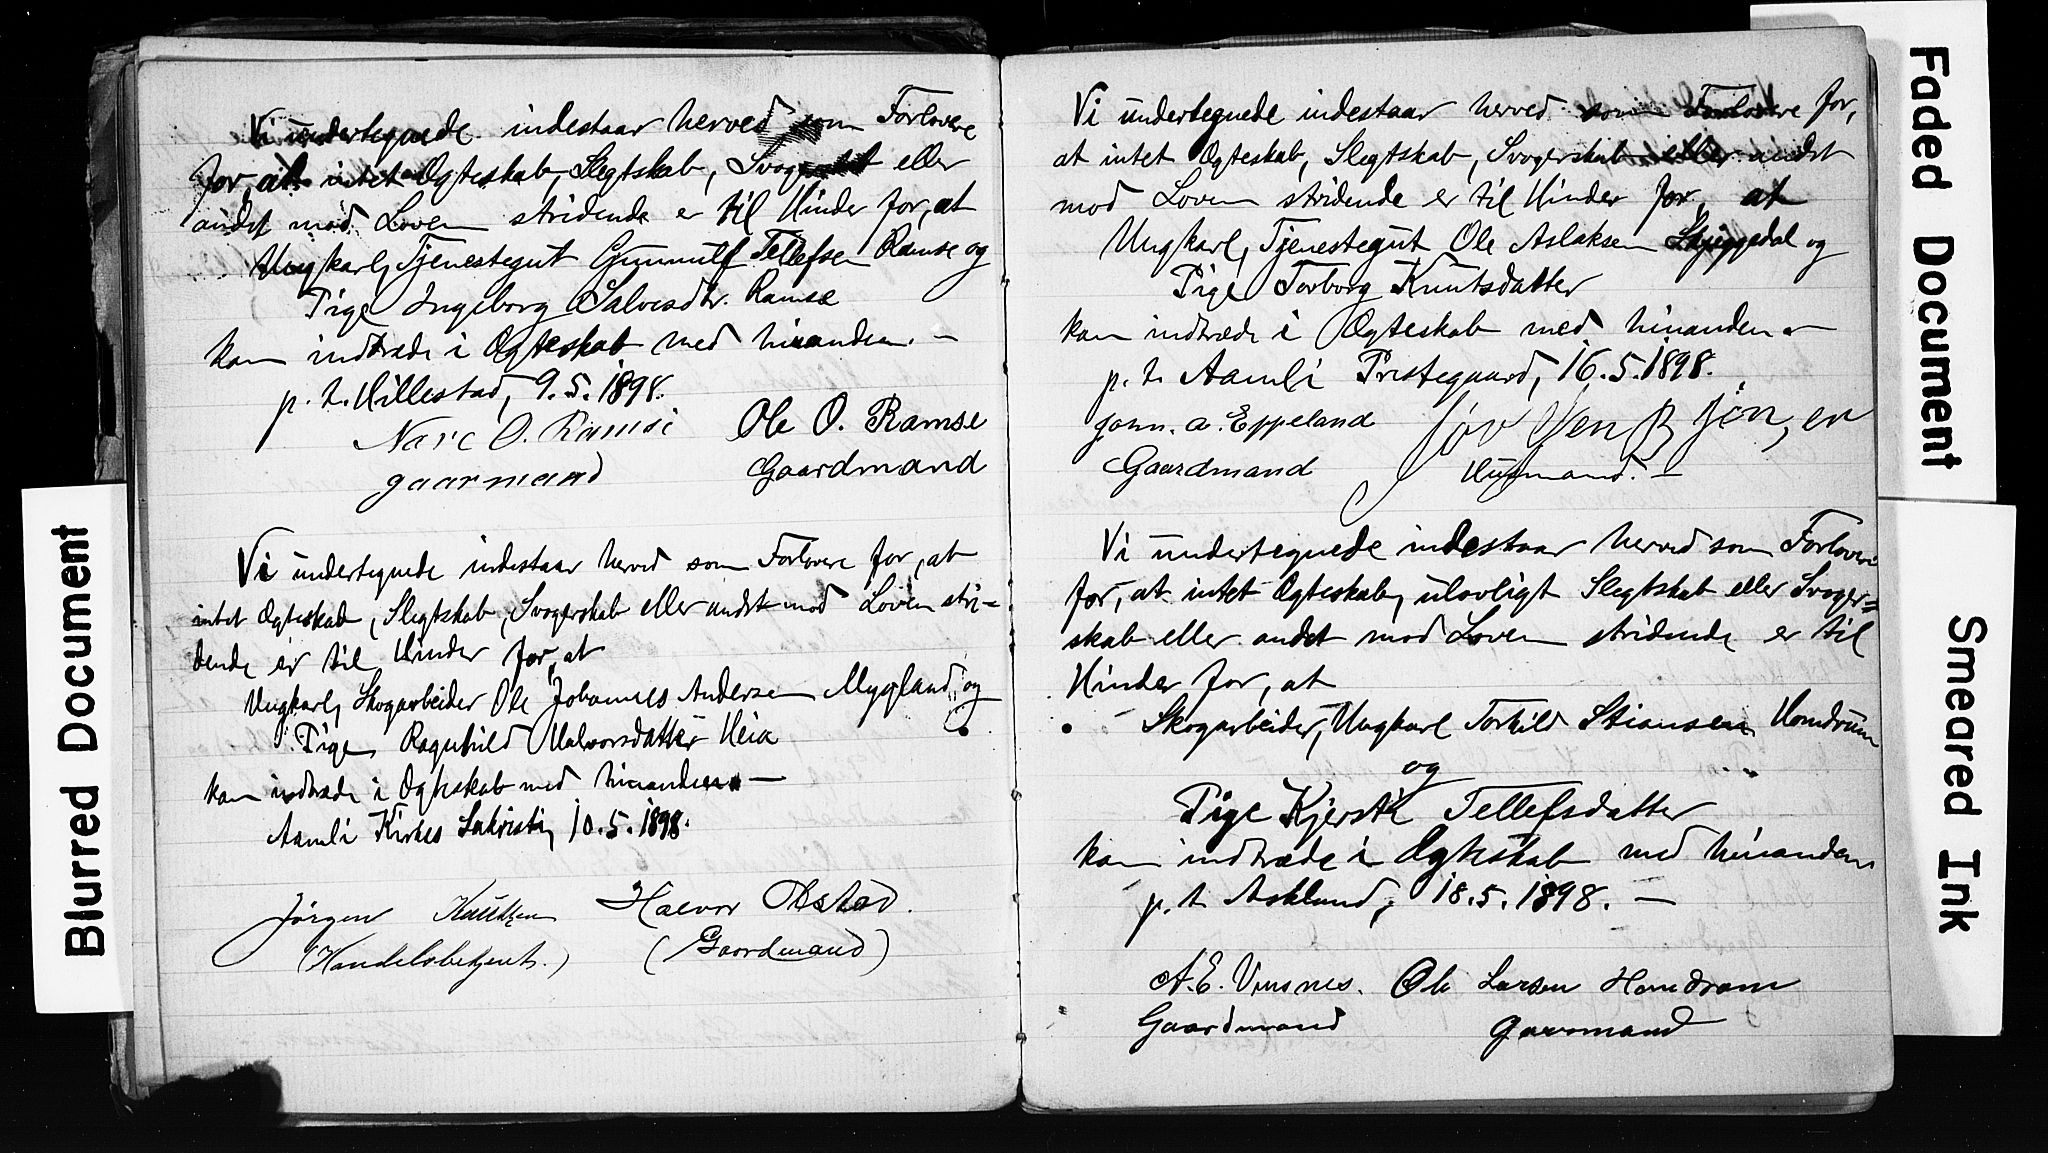 Vi undertegnede indestaar herved som Forlovere
for, at intet Ægteskab, Slegtskab, Svogerskab eller
andet mod Loven stridende er til Hinder for, at
Ungkarl, Tjenestegut Gunnulf Tellefsen Ramse og
Pige Ingeborg Salvesdtr. Ramse
kan indtræde i Ægteskab med hinanden. –
p. t. Hillestad, 9.5.1898.
O. Ramse Ole O. Ramse
gaarmand Gaardmand
Vi undertegnede indestaar herved som Forlovere for, at
intet Ægteskab, Slegtskab, Svogerskab eller andet mod Loven stri-
dende er til Hinder for, at
Ungkarl, Skogarbeider Ole Johannes Andersen Mygland, og
Pige Ragnhild Halvorsdatter Heia
kan indtræde i Ægteskab med hinanden. –
Aamli Kirkes Sakristi, 10.5.1898.
Jørgen Knutsen Halvor
(Handelsbetjent.) (Gaardmand)
Vi undertegnede indestaar herved som Forlovere for,
at intet Ægteskab, Slegtskab, Svogerskab eller andet
mod Loven stridende er til Hinder for, at
Ungkarl, Tjenestegut Ole Aslaksen Skjeggedal og
Pige Torborg Knutsdatter
kan indtræde i Ægteskab med hinanden –
p. t. Aamli Prestegaard, 16.5.1898.
a. Eppeland
Gaardmand Husmand. –
Vi undertegnede indestaar herved som Forlovere
for, at intet Ægteskab, ulovligt Slegtskab eller Svoger-
skab eller andet mod Loven stridende er til
Hinder for, at
Skogarbeider, Ungkarl Torkild Stiansen Homdrum
og
Pige Kjersti Tellefsdatter
kan indtræde i Ægteskab med hinanden
p. t. Askland, 18.5.1898. –
A. E. Vinsnes. Ole Larsen Homdrom
Gaardmand garrmand
Blurred Document
Faded Document
Smeared Ink